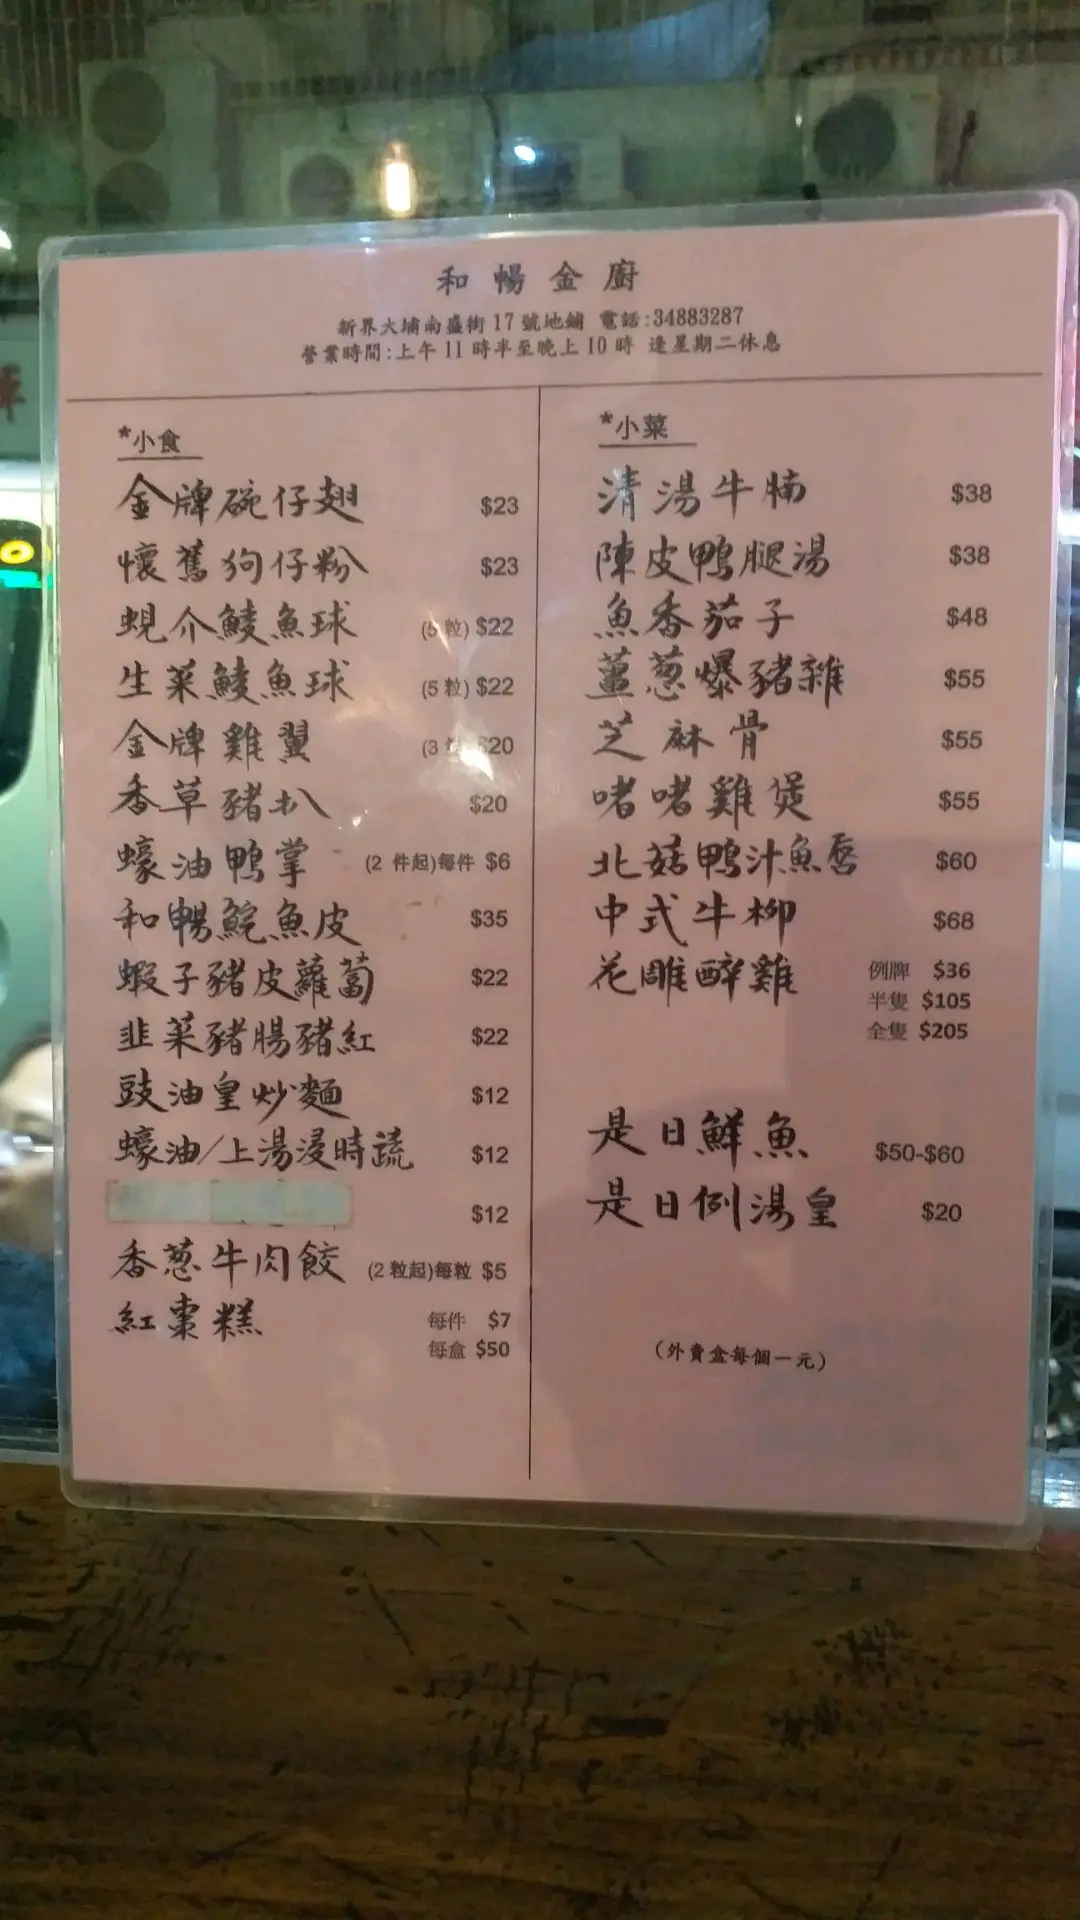 和暢金廚
新界大埔南盛街17號地鋪 電話:34883287
營業時間:上午11時半至晚上10時 逢星期二休息
*小食
金牌碗仔翅 $23
懷舊狗仔粉 $23
蜆介鯪魚球 (5粒) $22
生菜鯪魚球 (5粒) $22
金牌雞翼 (3 $20
香草豬扒 $20
蠔油鴨掌 (2 件起)每件 $6
和暢鯇魚皮 $35
蝦子豬皮蘿蔔 $22
韭菜豬腸豬紅 $22
豉油皇炒麵 $12
蠔油/上湯浸時蔬 $12
$12
香葱牛肉餃 (2粒起)每粒 $5
紅棗糕 每件 $7
每盒 $50
*小菜
清湯牛腩 $38
陳皮鴨腿湯 $38
魚香茄子 $48
薑葱爆豬雜 $55
芝麻骨 $55
啫啫雞煲 $55
北菇鴨汁魚唇 $60
中式牛柳 $68
花雕醉雞 例牌 $36
半隻 $105
全隻 $205
是日鮮魚 $50-$60
是日例湯皇 $20
(外賣盒每個一元)